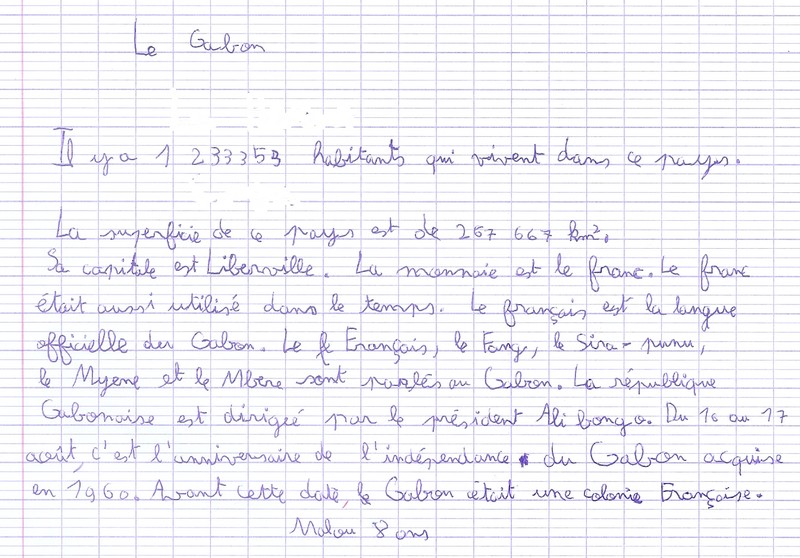 Le Gabon
Il y a 1 233353 habitants qui vivent dans ce pays.
La superficie de ce pays est de 257 667 km².
Sa capitale est Liberville. La monnaie est le franc. Le franc
était aussi utilisé dans le temps. Le français est la langue
officielle du Gabon. Le Français, le Fang, le Sira-punu,
le Myene et le Mbere sont parlés au Gabon. La république
Gabonaise est dirigée par le président Ali bongo. Du 16 au 17
août, c'est l'anniversaire de l'indépendance du Gabon acquise
en 1960. Avant cette date, le Gabon était une colonie Française.
Malou 8 ans